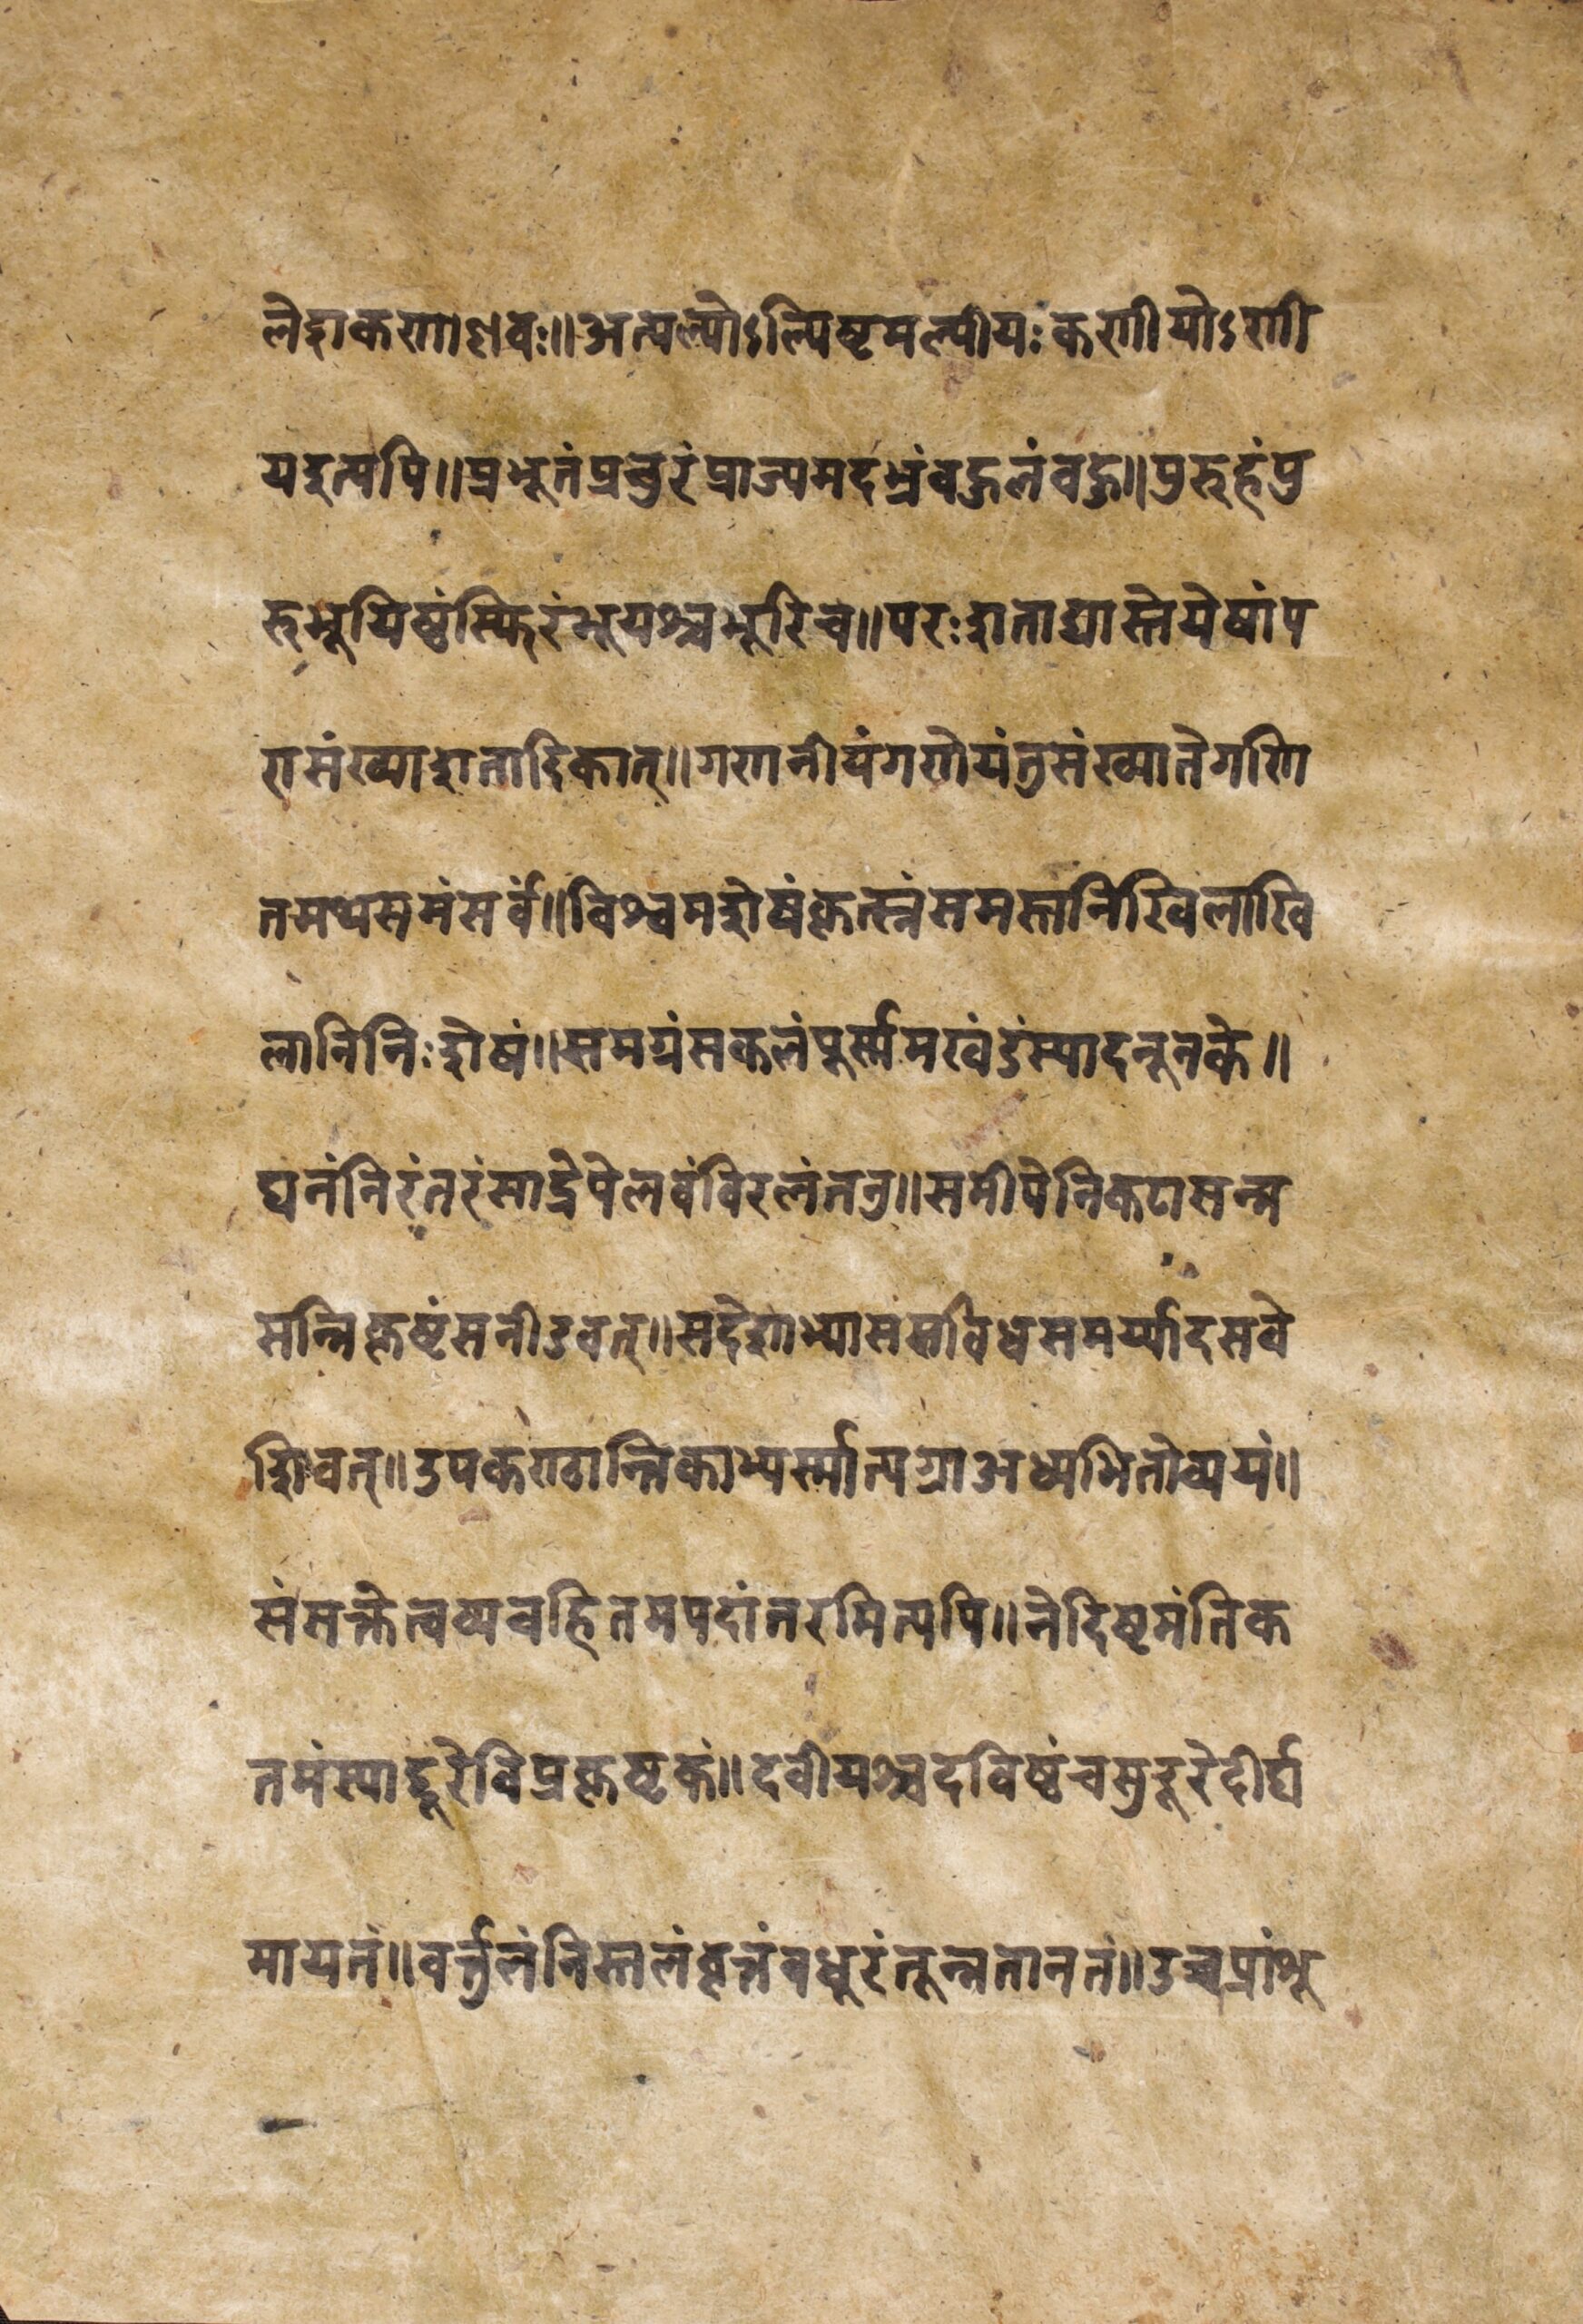 लेशकणाणवः॥अत्यल्पोऽल्पिष्टमल्पीयःकणीयोऽणी
यइत्यपि॥प्रभूतंप्रचुरंप्राज्यमदभ्रंवहुलंवहु॥पुरुहंपु
रुभूयिष्ठंस्फिरंभूयश्चभूरिच॥परःशताद्यास्तेयेषांप
रासंख्याशतादिकात्॥गणनीयंगणेयंतुसंख्यातेगणि
तमथसमंसर्वं॥विश्वमशेषंकृत्स्नंसमस्तानिखिलाखि
लानिनिःशेषं॥समग्रंसकलंपूर्णमखंडंस्यादनूनके॥
घनंनिरंतरंसाद्रेपेलवंविरलंतनु॥समीपेनिकटासन्न
सन्निकृष्टंसनीडवत्॥सदेशाभ्याससविधसमर्य्यादसवे
शिवत्॥उपकण्ठान्तिकाभ्यर्णात्यग्राअध्यभितोव्ययं॥
संसक्तेत्वव्यवहितमपदांतरमित्यपि॥नेदिष्टमंतिक
तमंस्याद्दूरेविप्रकृष्टकं॥दवीयश्चदविष्टंचसुदूरेदीर्घ
मायतं॥वर्त्तुलंनिस्तलंवृत्तंवधुरंतून्नतानतं॥उच्चप्रांभु